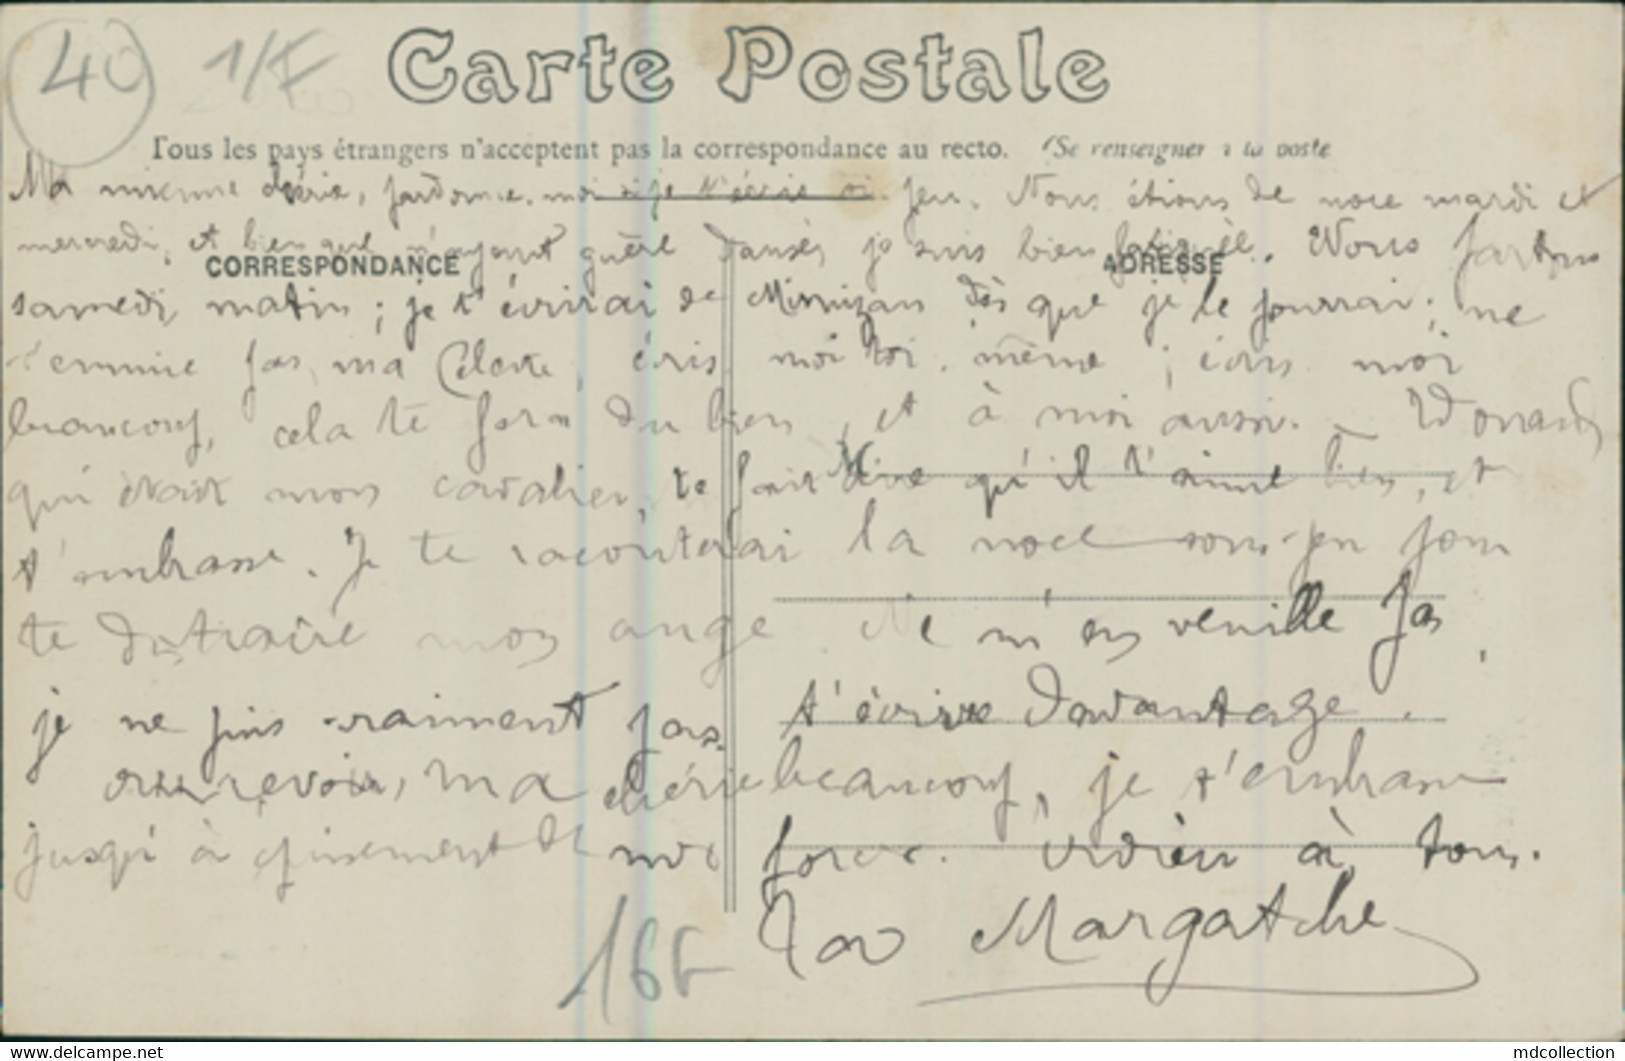 40 1/F
Carte Postale
Tous les pays étrangers n'acceptent pas la correspondance au recto. (Se renseigner à la poste
Ma mienne chérie, pardonne-moi si je t'écris si peu. Nous étions de noce mardi et
mercredi, et bien que n'ayant guère dansé, je suis bien fatiguée. Nous partons
CORRESPONDANCE ADRESSE
samedi matin ; je t'écrirai de Mimizan dès que je le pourrai ; ne
t'ennuie pas, ma Céleste, écris moi toi-même ; écris moi
beaucoup, cela te fera du bien, et à moi aussi. -
qui était mon cavalier, te fait dire qu'il t'aime bien, et
t'embrasse. Je te raconterai la noce pour
te distraire mon ange Ne m'en veuille pas,
je ne puis vraiment pas t'écrire davantage.
au revoir, ma chérie beaucoup, je t'embrasse
jusqu'à épuisement de mes forces. à tous.
Ta Margatche
166
www.delcampe.net
mdcollection